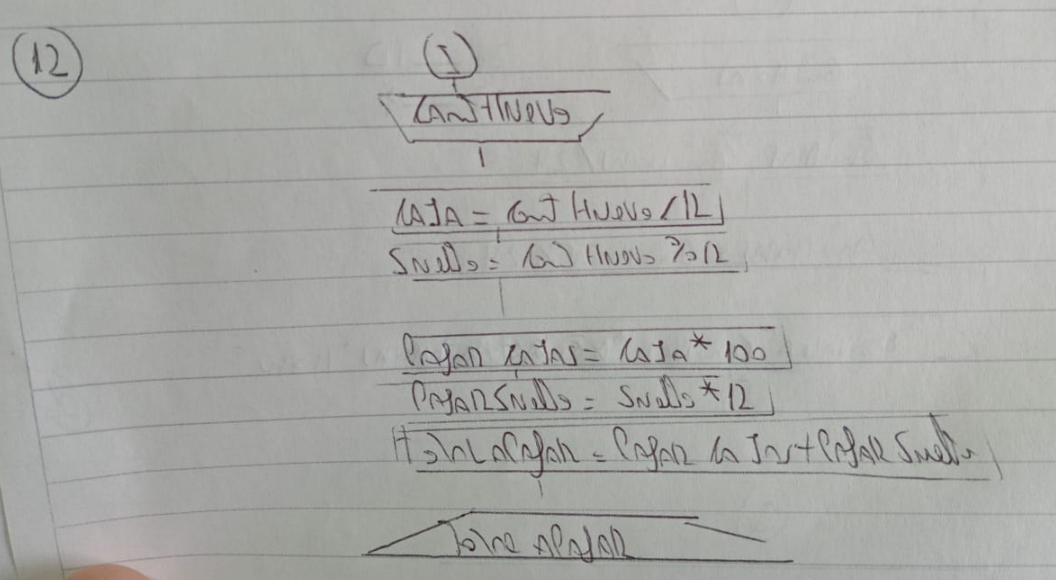 12
I
CantHuevo
CAJA = Cant Huevo / 12
Suelto = Cant Huevo % 12
PAgAR CAJAS = CAJA * 100
PAgARSuelto = Suelto * 12
TotAlAPAgAR = PAgAR CAJAS + PAgAR Suelto
Total APAgAR